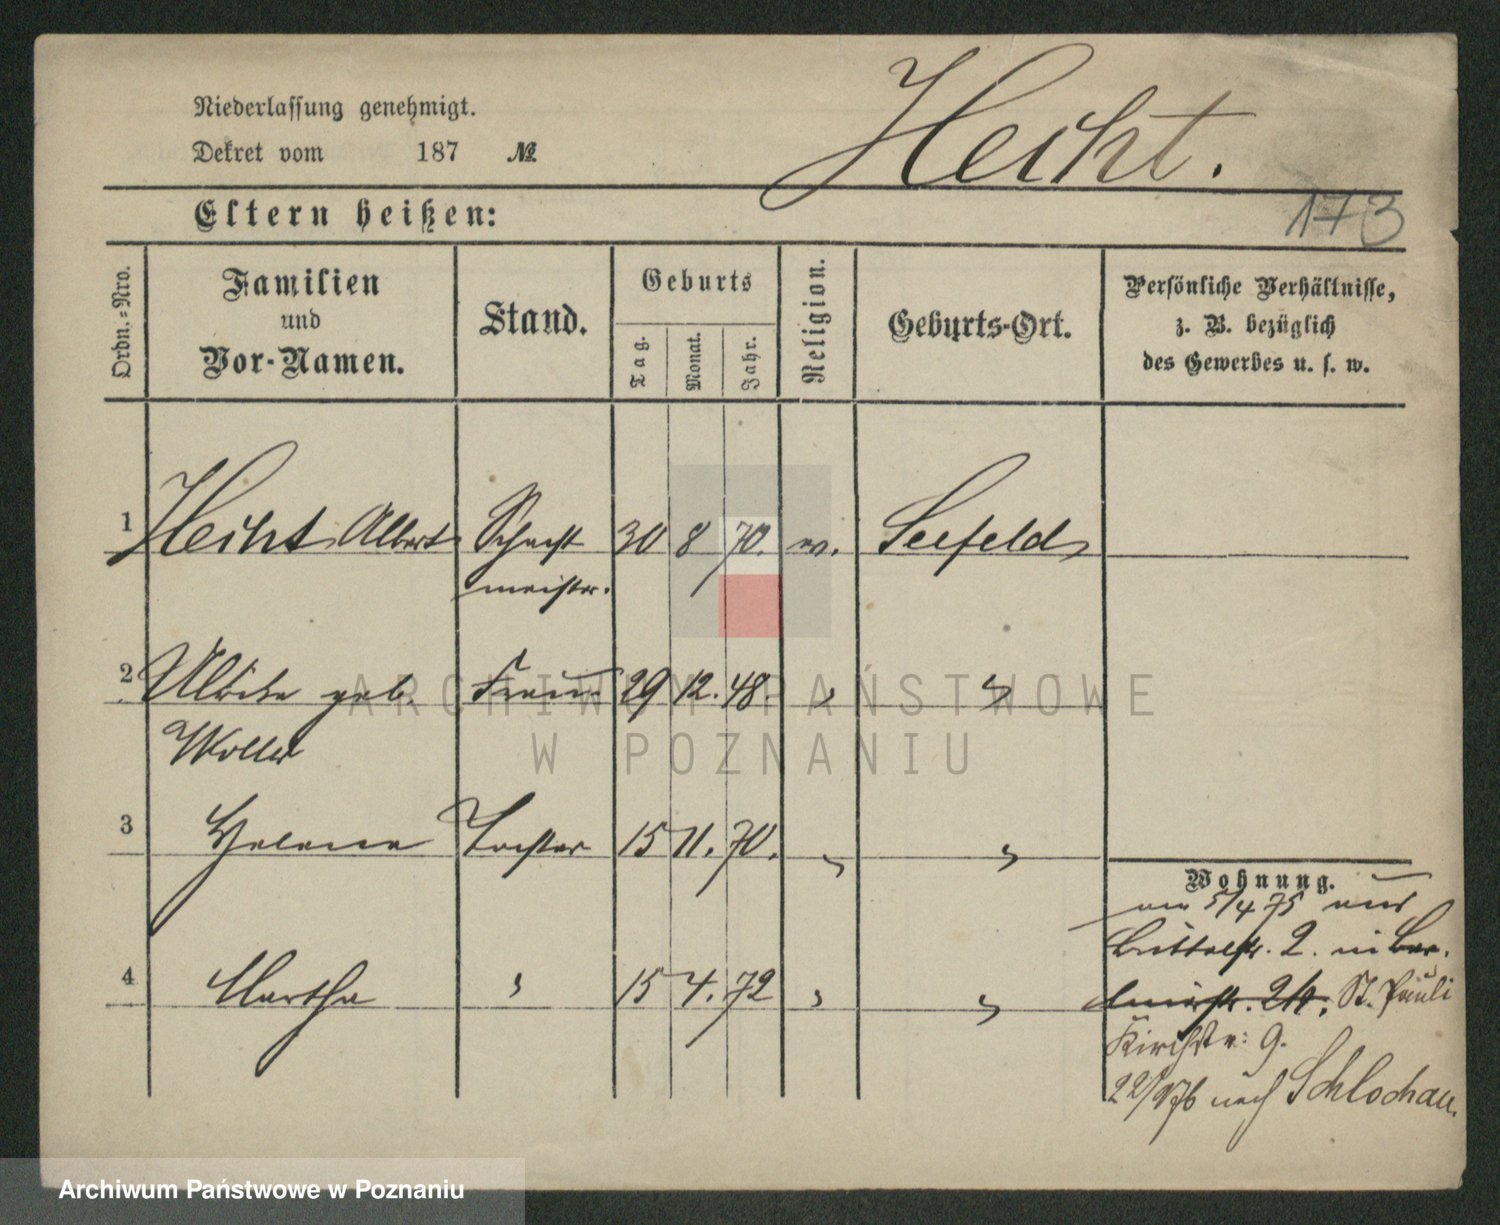 Niederlassung genehmigt.
Dekret vom 187 №
Hecht.
173
Eltern heißen:
Ordn.-Nro.
Familien
und
Vor-Namen.
Stand.
Geburts
Tag.
Monat.
Jahr.
Religion.
Geburts-Ort.
Persönliche Verhältnisse,
z. B. bezüglich
des Gewerbes u. s. w.
1 Hecht Albert Schacht 30 8 70. ev. Seefeld
meister.
2 Ulrike geb. Frau 29 12. 48. " "
Woller
3 Helene Tochter 15 11. 70. " "
4 Martha " 15 4. 72 " "
Wohnung.
5/4 75 aus
Büttelstr. 2. in
St. Pauli
Kirchstr: 9.
nach Schlochau.
ARCHIWUM PAŃSTWOWE
W POZNANIU
Archiwum Państwowe w Poznaniu